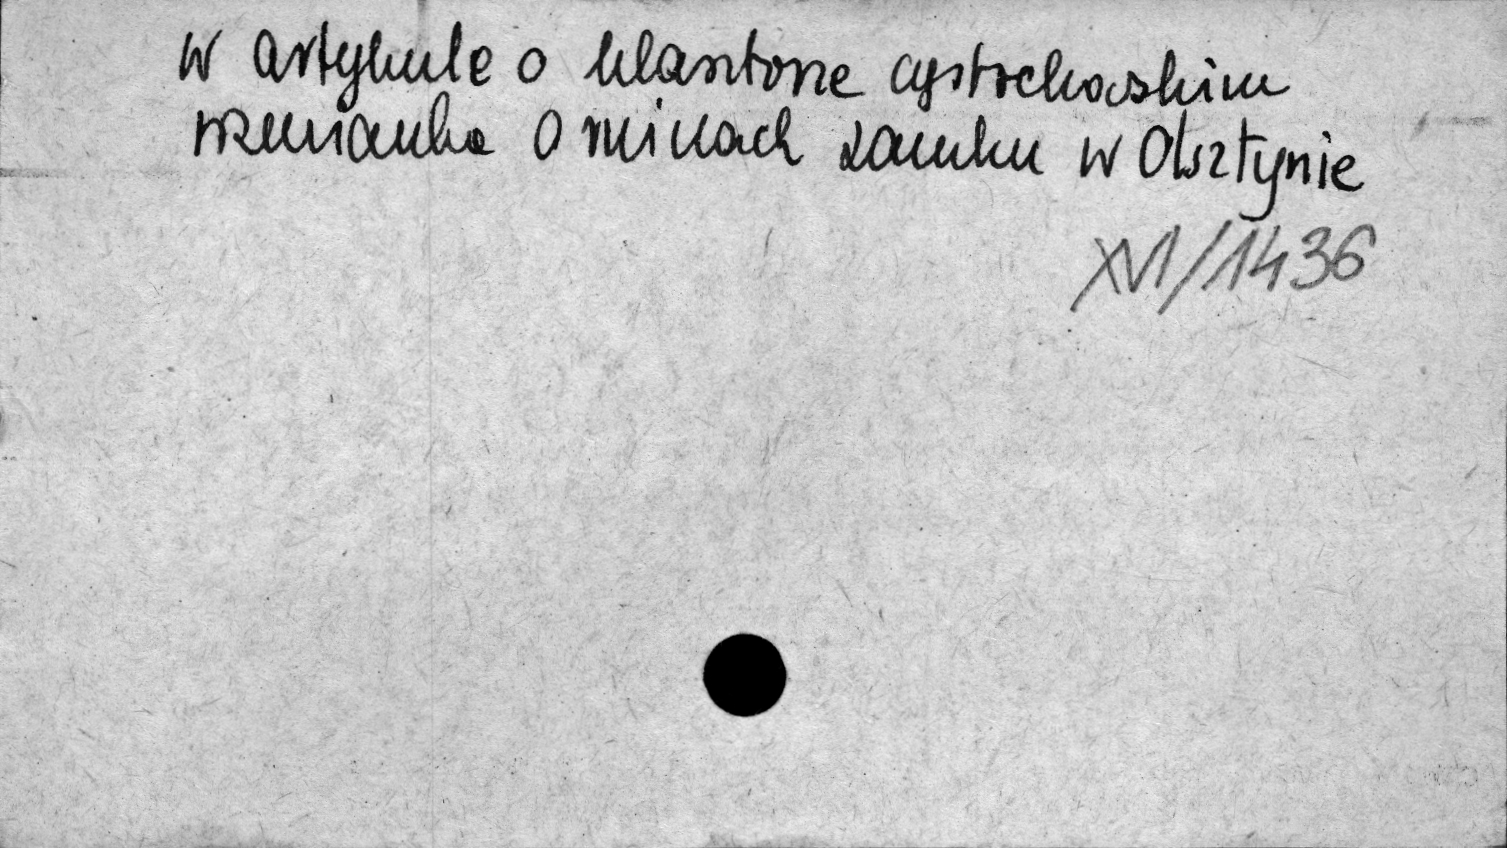 w artykule o klasztorze częstochowskim
wzmianka o ruinach zamku w Olsztynie
XVI/1436